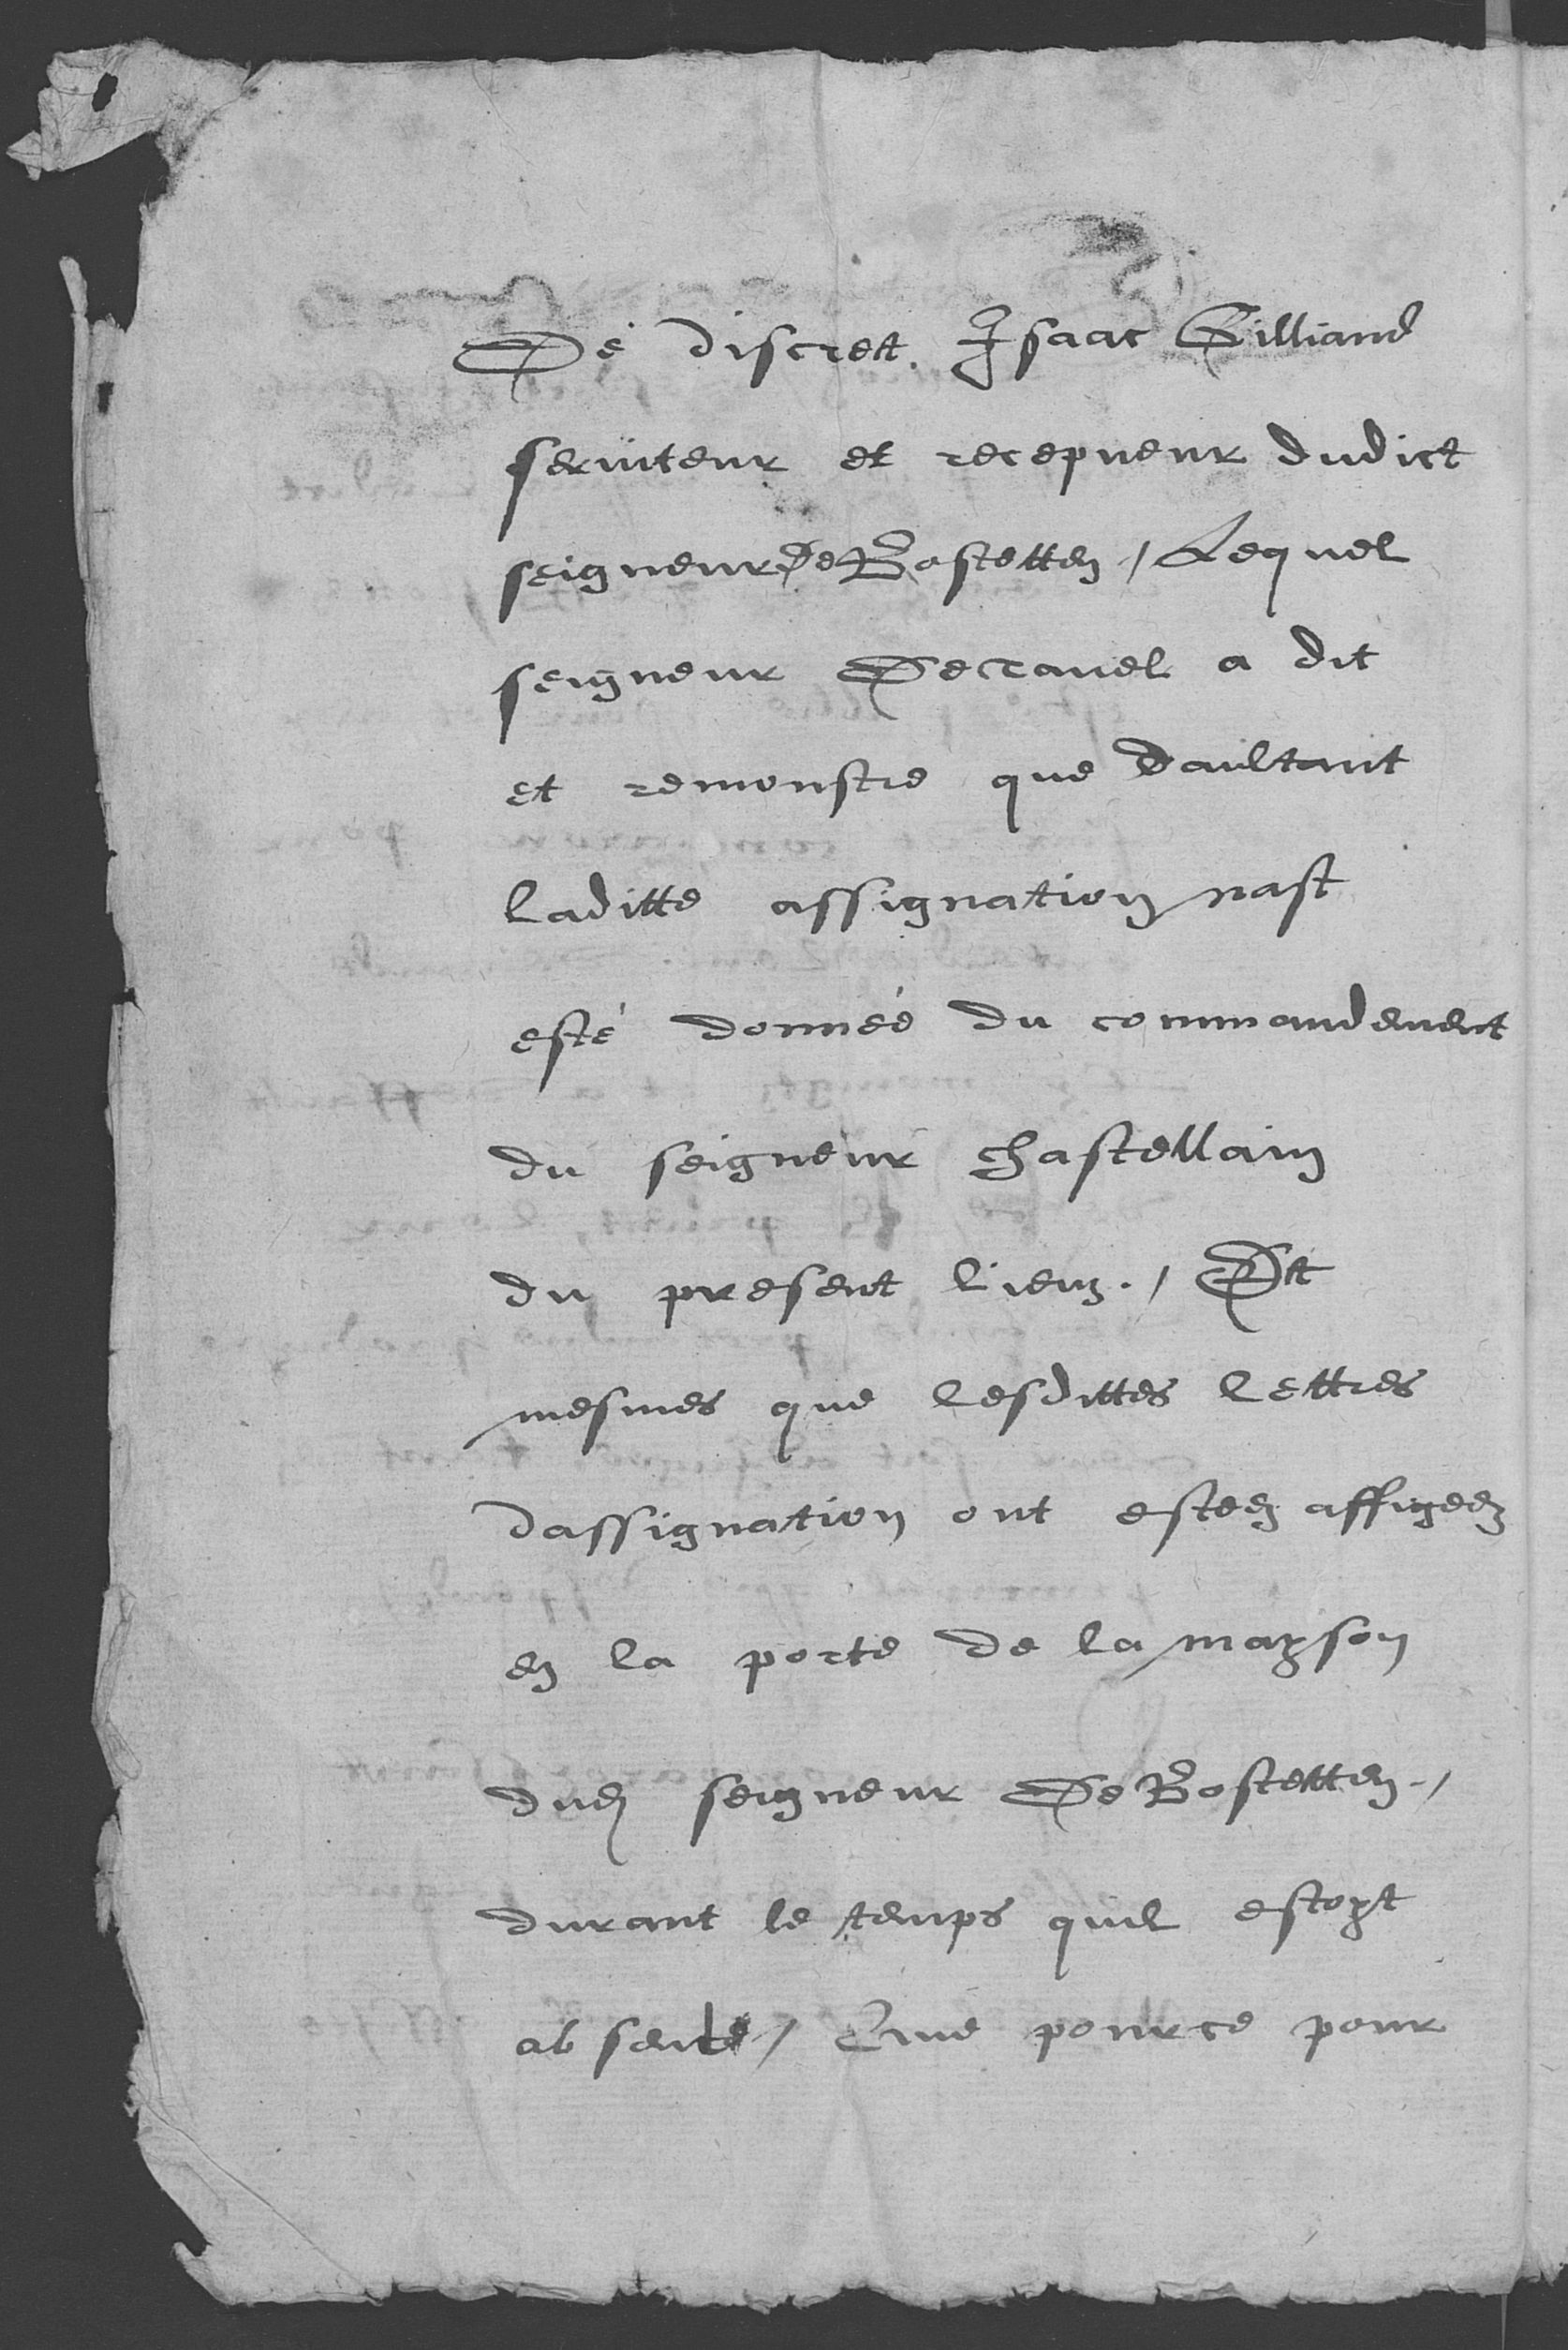 De discret. Isaac Gilliand
seruiteur et recepueur dudict
seigneur De Bostetten / Lequel
seigneur De Tauel a dit
et remonstre que daultant
laditte assignation nast
esté donnée du commandement
du seigneur chastellain
du present lieux. / Et
mesmes que lesdittes lettres
dassignation ont estees affigees
en la porte de la mayson
dud seigneur De Bostetten. /
durant le temps quil estoyt
absente / Que pource pour